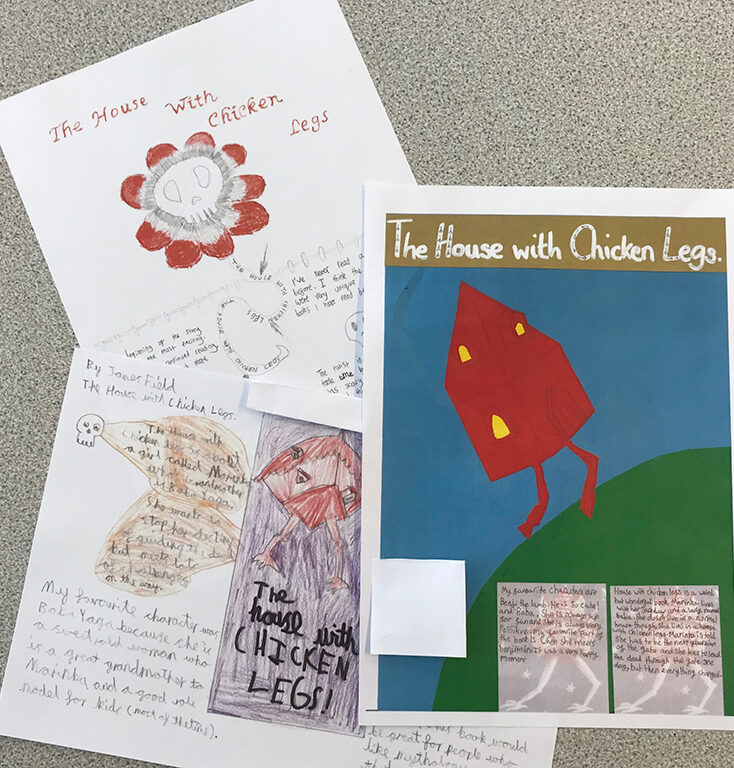 The House With Chicken Legs
THE HOUSE WITH CHICKEN LEGS
I've never read a
before. I think the
were very unique
books I have read
beginning of the story
the most exciting
continued reading,
The twist
took me
By James Field
The House with Chicken Legs.
The House with
Chicken legs is about
a girl called Marinka
who's grandmother
is Baba Yaga.
She wants to
stop her destiny
of guiding the dead
but meets lots
of challenges
on the way.
My favourite character was
Baba Yaga because she is
a sweet old woman who
is a great grandmother to
Marinka and a good role
model for kids (most of the time).
The
house with
CHICKEN
LEGS!
book would
be great for people who
like mythological
The House with Chicken Legs.
My favourite characters are
Benji the lamb. He is so cute!
and Baba. She is always up
for fun and she is always very
Positive. My favourite part of
the book is when she meets
benjamin it was a very funny
moment
House with chicken legs is a weird
but wonderful book. Marinka lives
with her Jackdaw and a large nosed
baba. She doesn't live in a normal
house though. She lives in a house
with chicken legs. Marinka is told
She has to be the next guardian
of the gate and she has to lead
the dead through the gate one
day, but then everything changed.